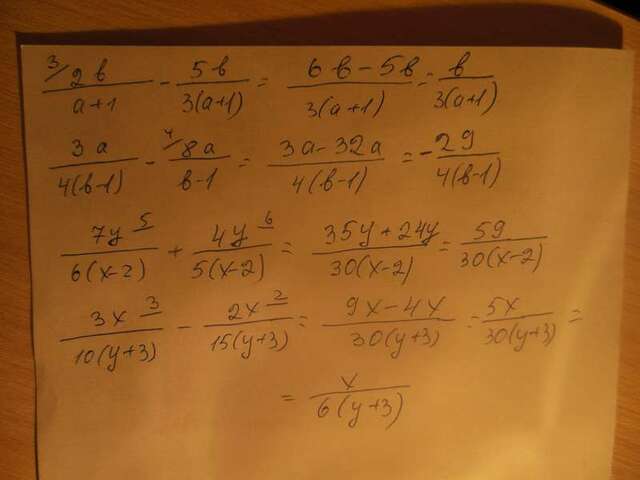 ³/ 2b/(a+1) - 5b/(3(a+1)) = (6b-5b)/(3(a+1)) = b/(3(a+1))
3a/(4(b-1)) - ⁴/ 8a/(b-1) = (3a-32a)/(4(b-1)) = -29/(4(b-1))
7y 5/(6(x-2)) + 4y 6/(5(x-2)) = (35y+24y)/(30(x-2)) = 59/(30(x-2))
3x 3/(10(y+3)) - 2x 2/(15(y+3)) = (9x-4x)/(30(y+3)) = 5x/(30(y+3)) =
= x/(6(y+3))